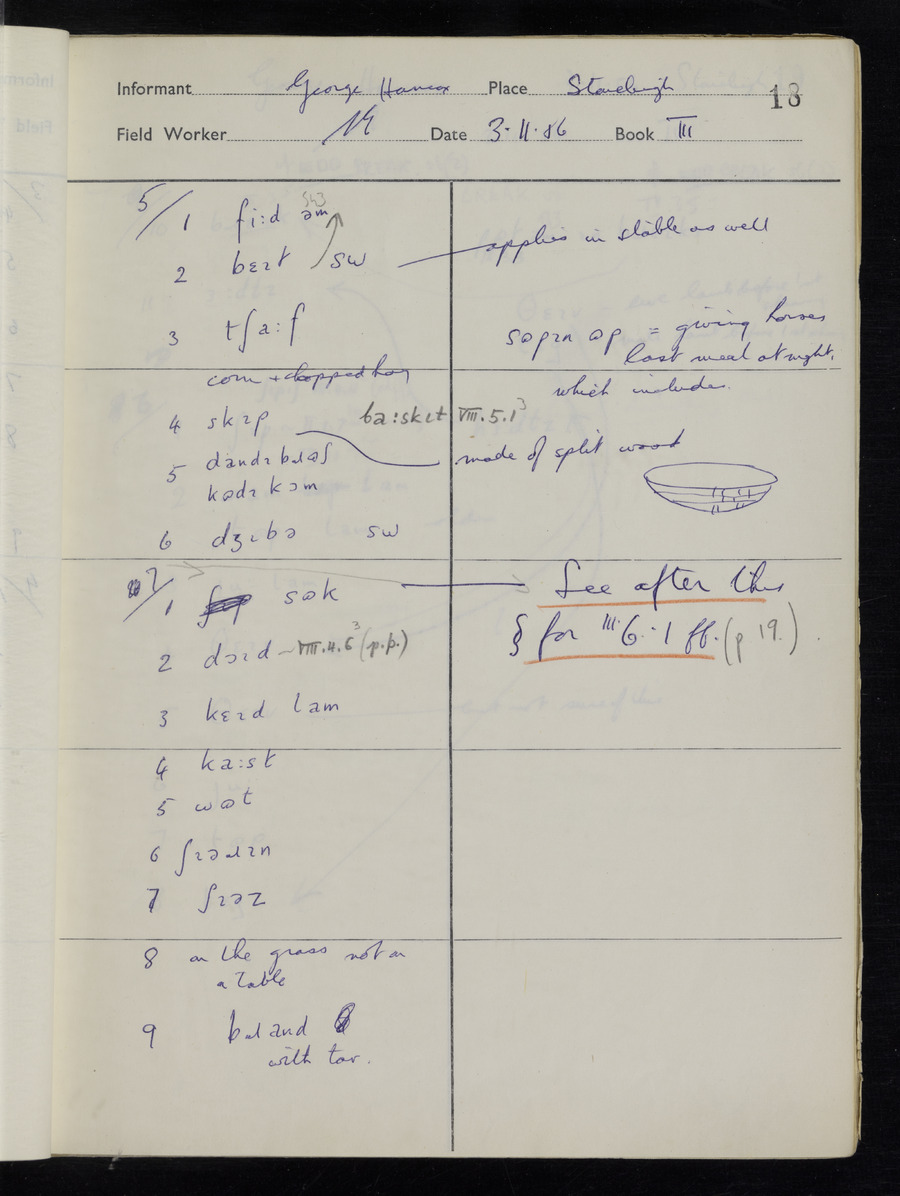 Informant George Hancox Place Stoneleigh 18
Field Worker Date 3.11.56 Book III
5/ 1 fiːd əm
2 bɛɪt sw applies in stable as well
3 tʃaːf
sɷpɪn ɷp = giving horses
last meal at night,
corn + chopped hay which includes.
4 skɪp baːskɪt VIII.5.1³
5 dandɪ bɹɷʃ made of split wood
kɷdɪ kɔm
6 dʒɪbə sw
7/ 1 sɷk See after this
§ for III.6.1 ff. (p 19.)
2 dɔɪd – VIII.4.6³ (p.p.)
3 kɛɪd lam
4 kaːst
5 wɷt
6 ʃɪəɹɪn
7 ʃɪəz
8 on the grass not on
a table
9 bɹand
with tar.